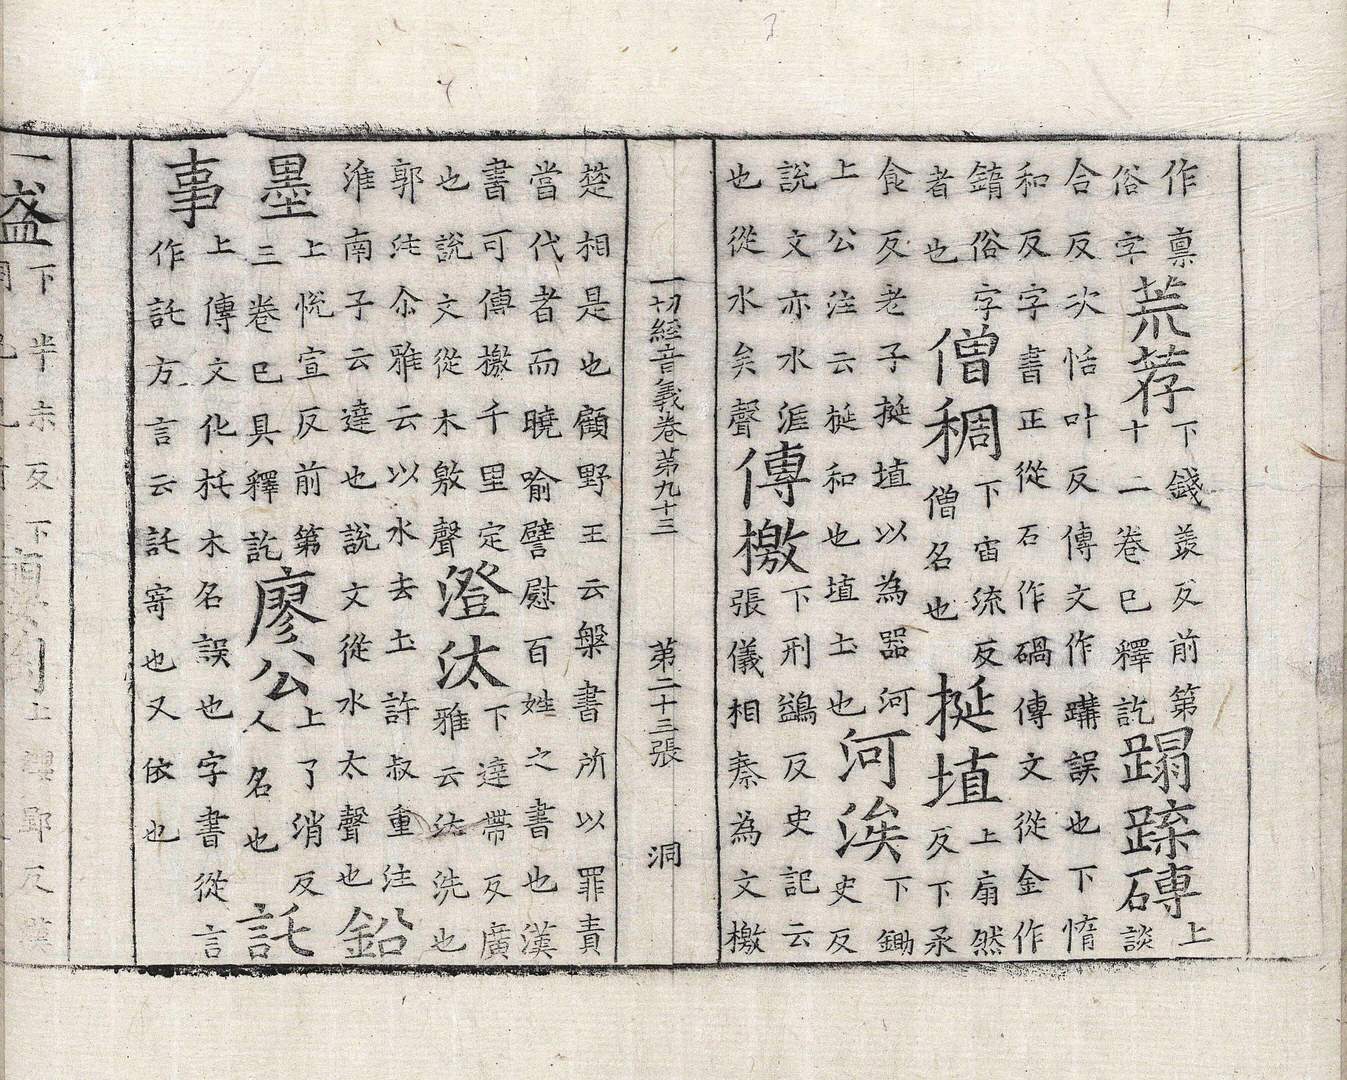 作稟
俗字
荒荐
下錢羨反前第
十二卷已釋訖
蹋蹂磚
上
談
合反次恬叶反傳文作蹫誤也下惰
和反字書正從石作碢傳文從金作
錆俗字
者也
僧稠
下宙流反
僧名也
挻埴
上扇然
反下承
食反老子挻埴以為器河
上公注云挻和也埴土也
河涘
下鋤
史反
說文亦水涯
也從水矣聲
傳檄
下刑鷁反史記云
張儀相秦為文檄
一切經音義卷第九十三 第二十三張 洞
楚相是也顧野王云檠書所以罪責
當代者而曉喻譬慰百姓之書也漢
書可傳檄千里定
也說文從木敫聲
澄汰
下達帶反廣
雅云汏洗也
郭注尒雅云以水去土許叔重注
淮南子云達也說文從水太聲也
鉛
墨
上悅宣反前第
三卷已具釋訖
廖公
上了消反
人名也
託
事
上傳文化杔木名誤也字書從言
作託方言云託寄也又依也